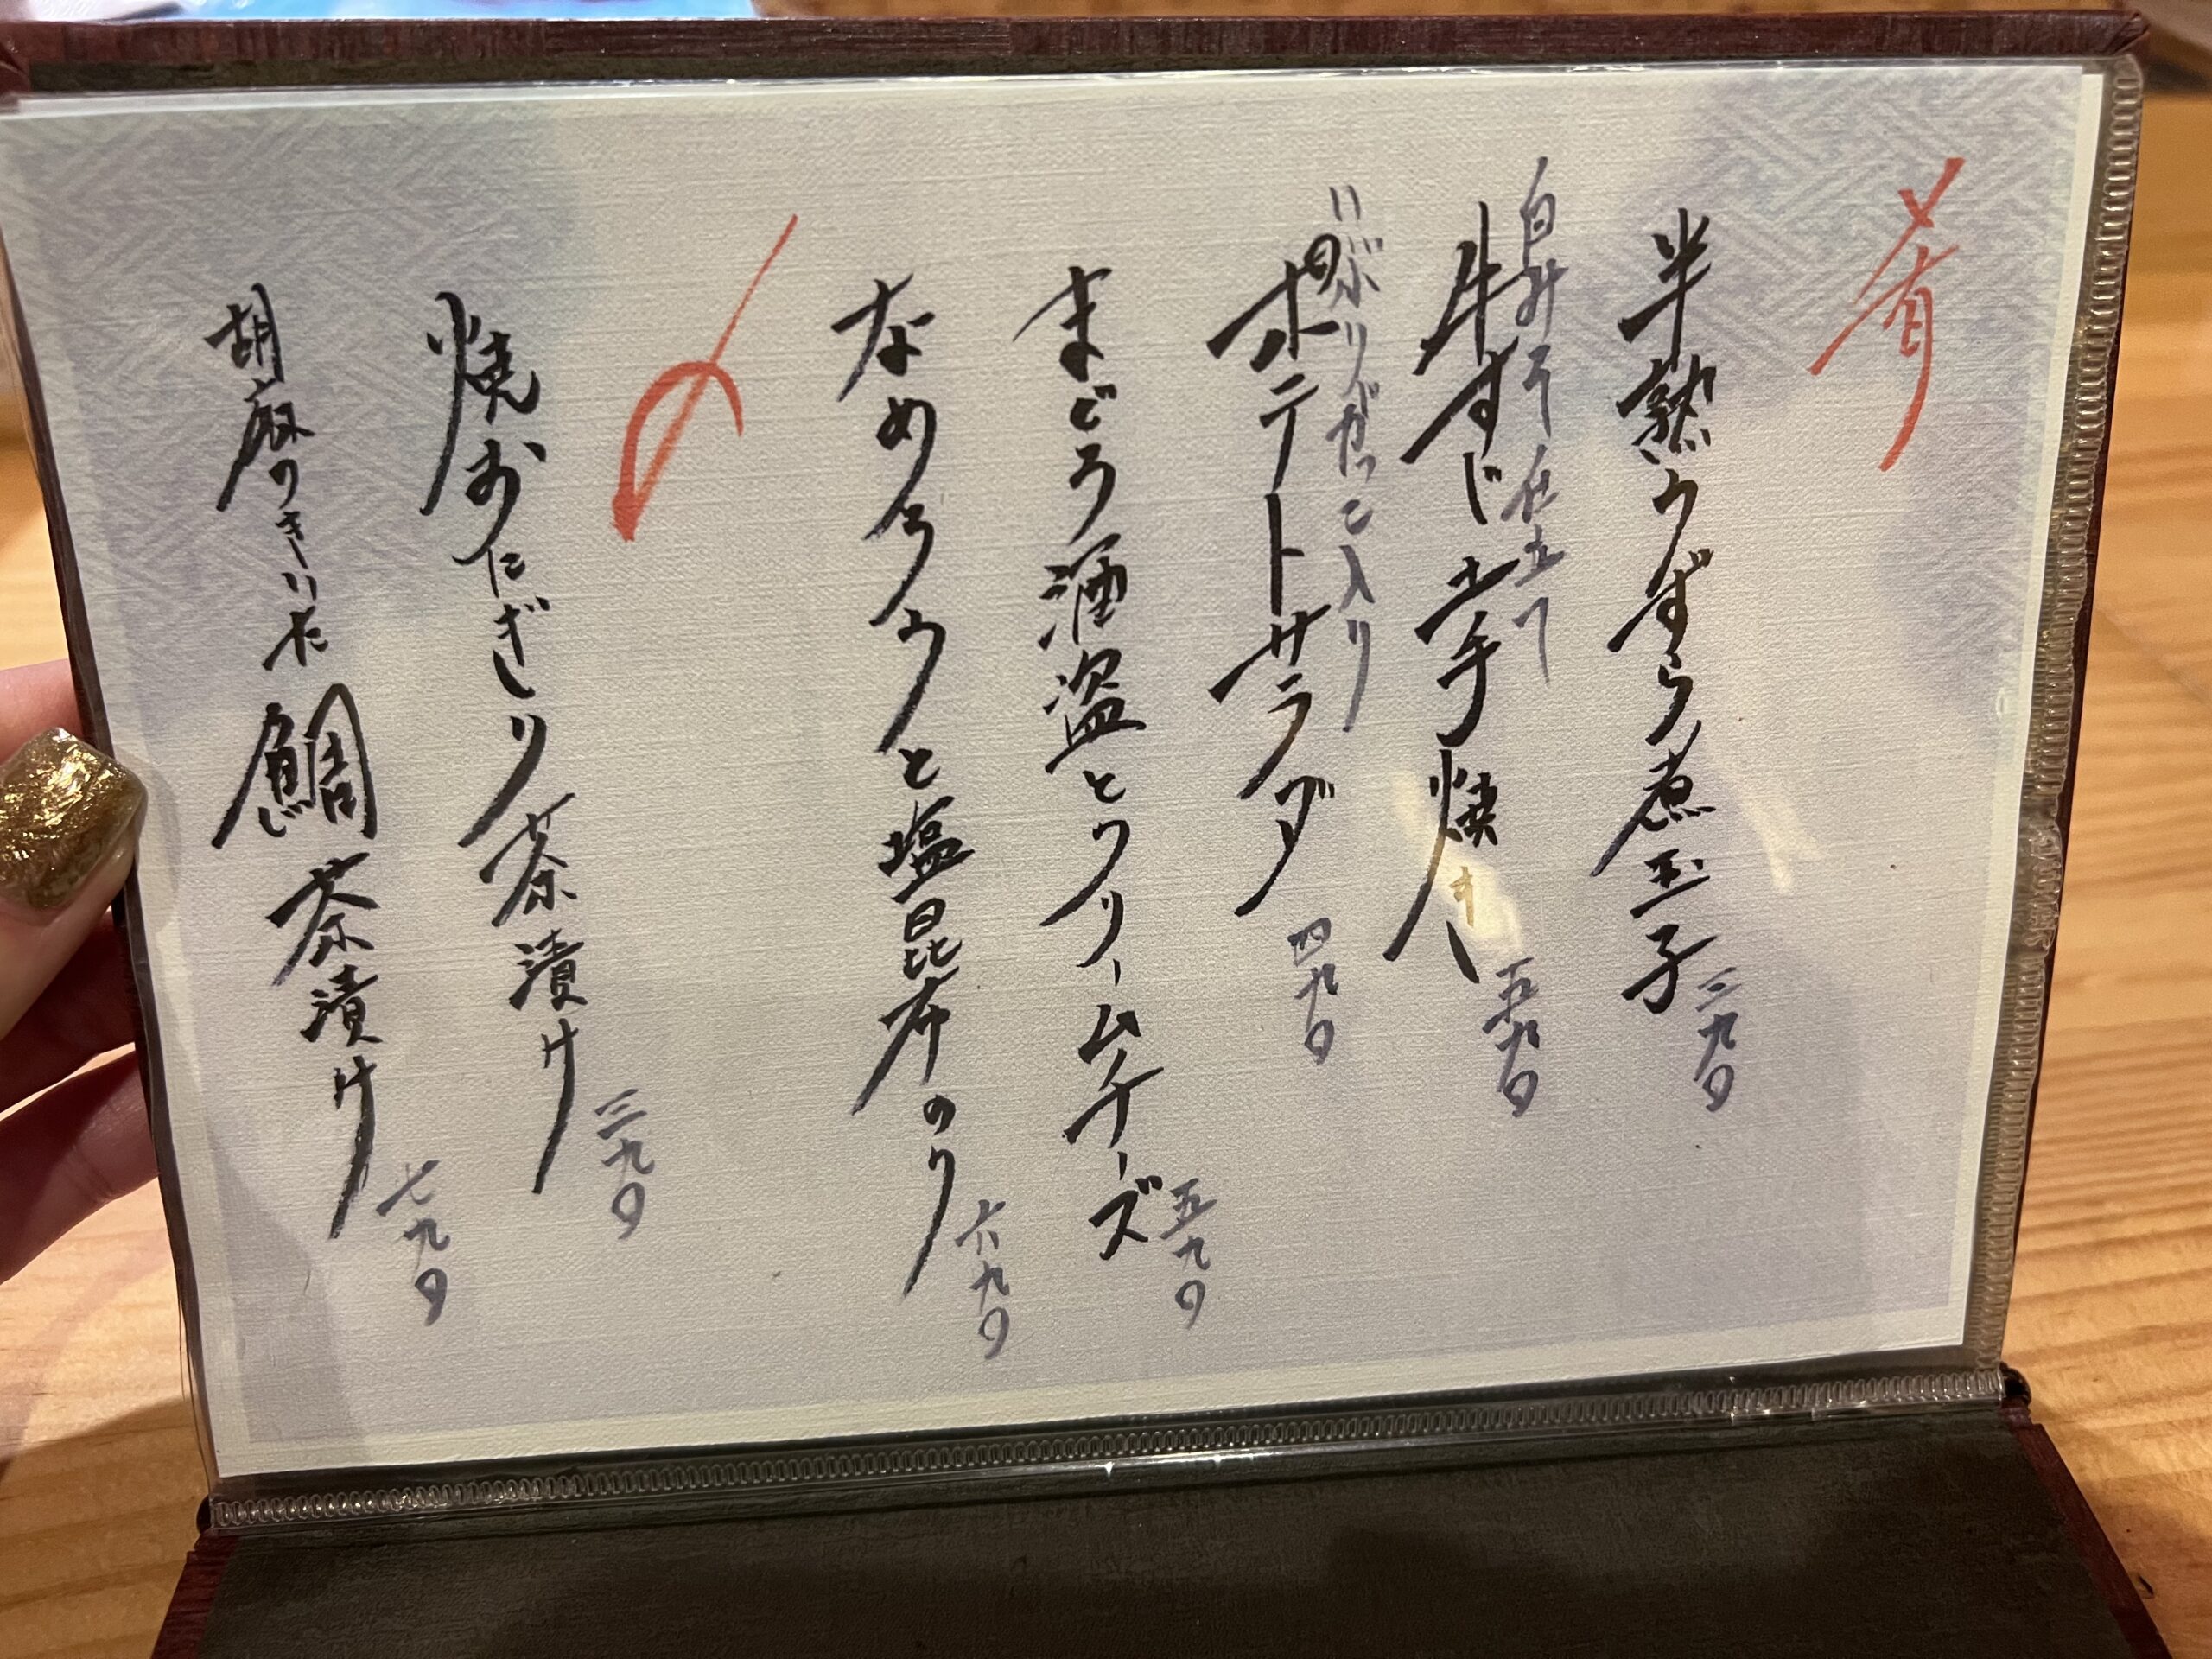 肴
半熟うずら煮玉子 二九〇
白みそ仕立て
牛すじ土手焼き 五九〇
いぶりがっこ入り
ポテトサラダ 四九〇
まぐろ酒盗とクリームチーズ 五九〇
なめろうと塩昆布のり 六九〇
〆
焼おにぎり茶漬け 三九〇
胡麻のきいた鯛茶漬け 七九〇